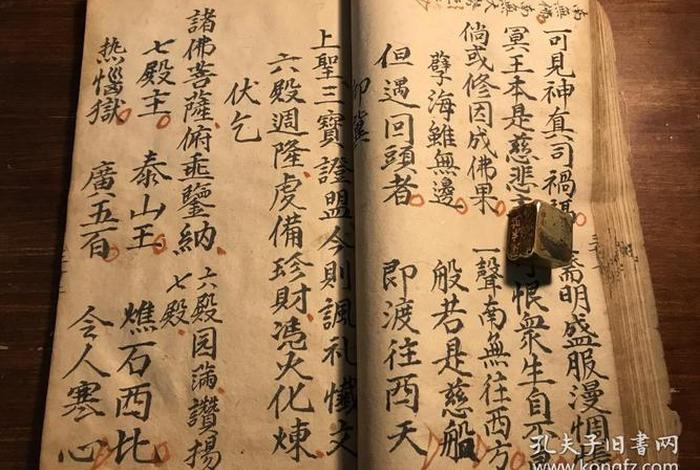 可見神真司禍 齋明盛服漫惆
冥王本是慈悲 恨衆生自
倘或修因成佛果 一聲南無往西方
孽海雖無邊 般若是慈船
但遇回頭者 即渡往西天
仰冀
上聖三寶證盟今則諷礼懺文
六殿週隆虔備珍財馮火化煉
伏乞
諸佛菩薩俯垂鑒納 六殿园满讚揚
七殿
七殿主 泰山王 燋石西比
热惱獄 廣五百 令人寒心
孔夫子旧书网
www.kongfz.com